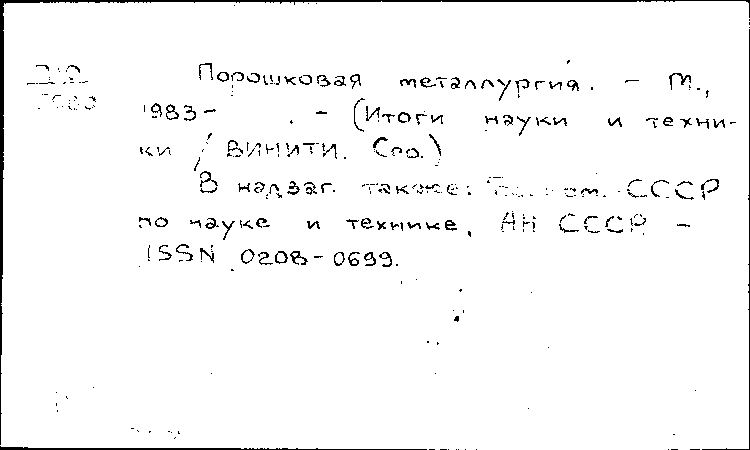 Порошковая металлургия. - М.,
1983- . - (Итоги науки и техни-
ки / ВИНИТИ. Сер.)
В надзаг. также: ком. СССР
по науке и технике, АН СССР -
ISSN 0208-0699.